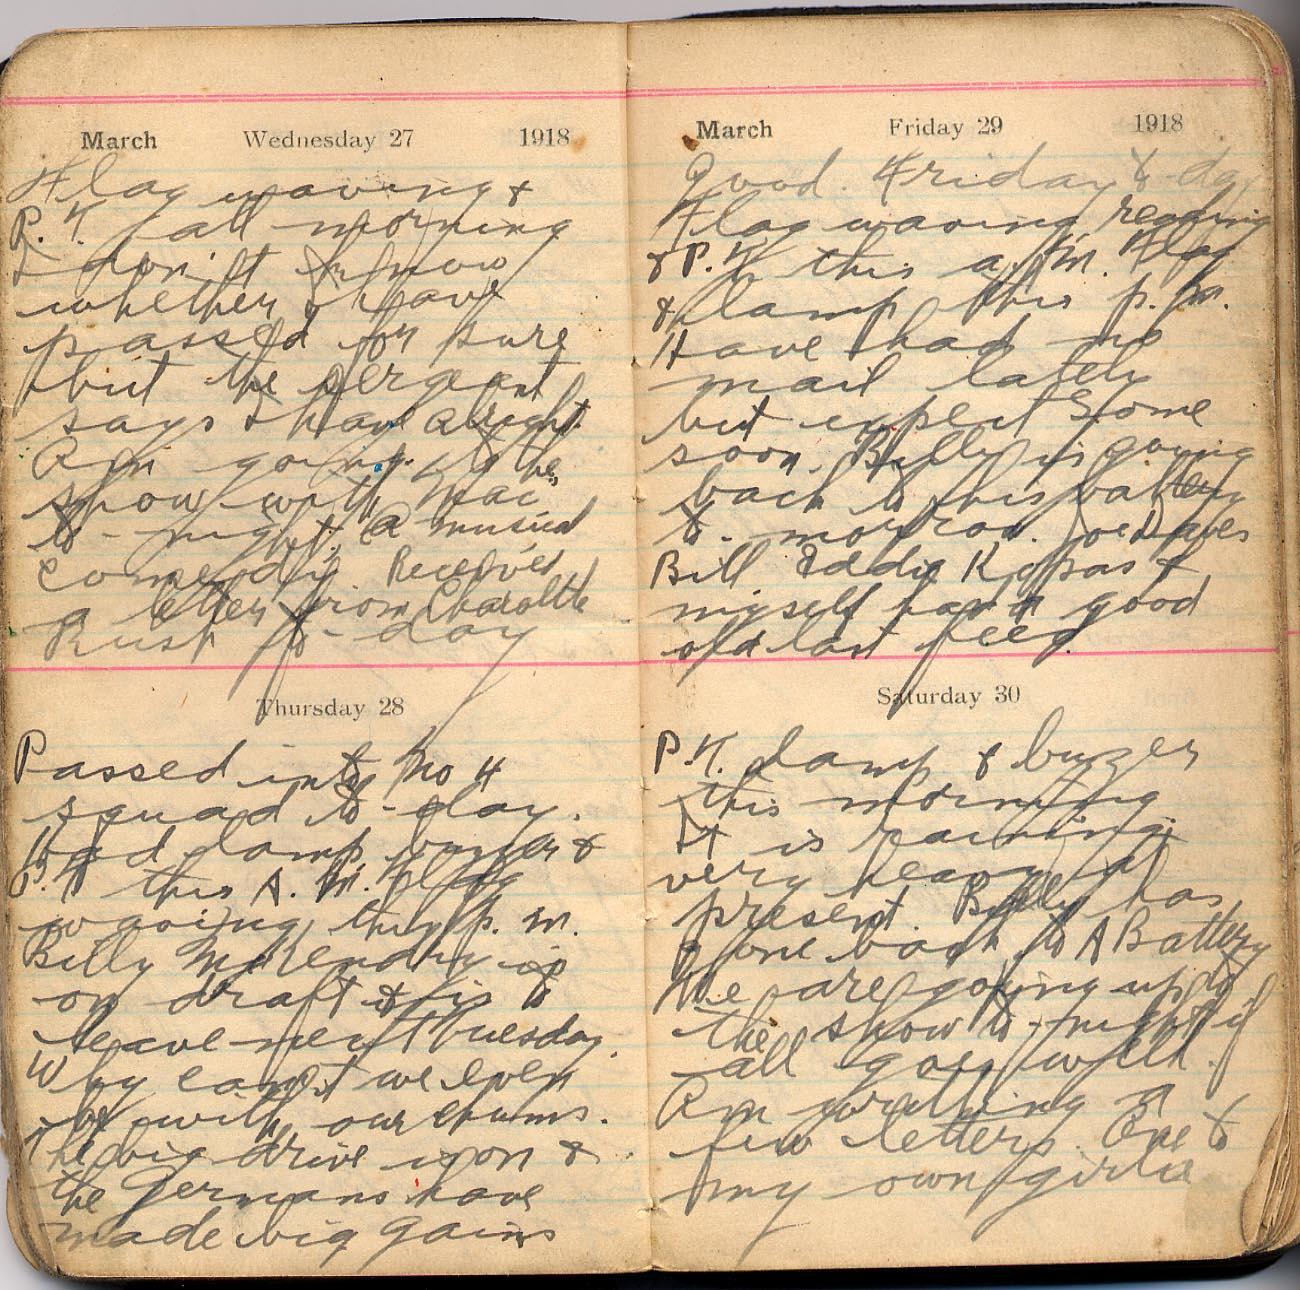 March Wednesday 27 1918
Flag waving &
P.T. all morning
I don't know
whether I have
passed for sure
but the sergeant
says I have alright.
Am going to the
show with Mac
to-night. A musical
comedy. Received
a letter from Charoltte
Rush to-day
Thursday 28
Passed into No 4
squad to-day.
Had lamp buzzer &
P.T. this A.M. Flag
waving this p.m.
Billy is
on draft & is to
leave next Tuesday.
Why can't we ever
be with our chums.
The big drive is on &
the Germans have
made big gains
March Friday 29 1918
Good Friday to-day
Flag waving reading
& P.T. this a.m. Flag
& lamp this p.m.
Have had no
mail lately
but expect some
soon. Billy is going
back to his battery
to-morrow. Joe Daves
Bill Eddie &
myself had a good
old last feed.
Saturday 30
P.T. lamp & buzer
this morning
It is raining
very heavy at
present. Billy has
gone back to A Battery
We are going up to
the show to-night if
all goes well.
Am writing a
few letters. One to
my own girlie